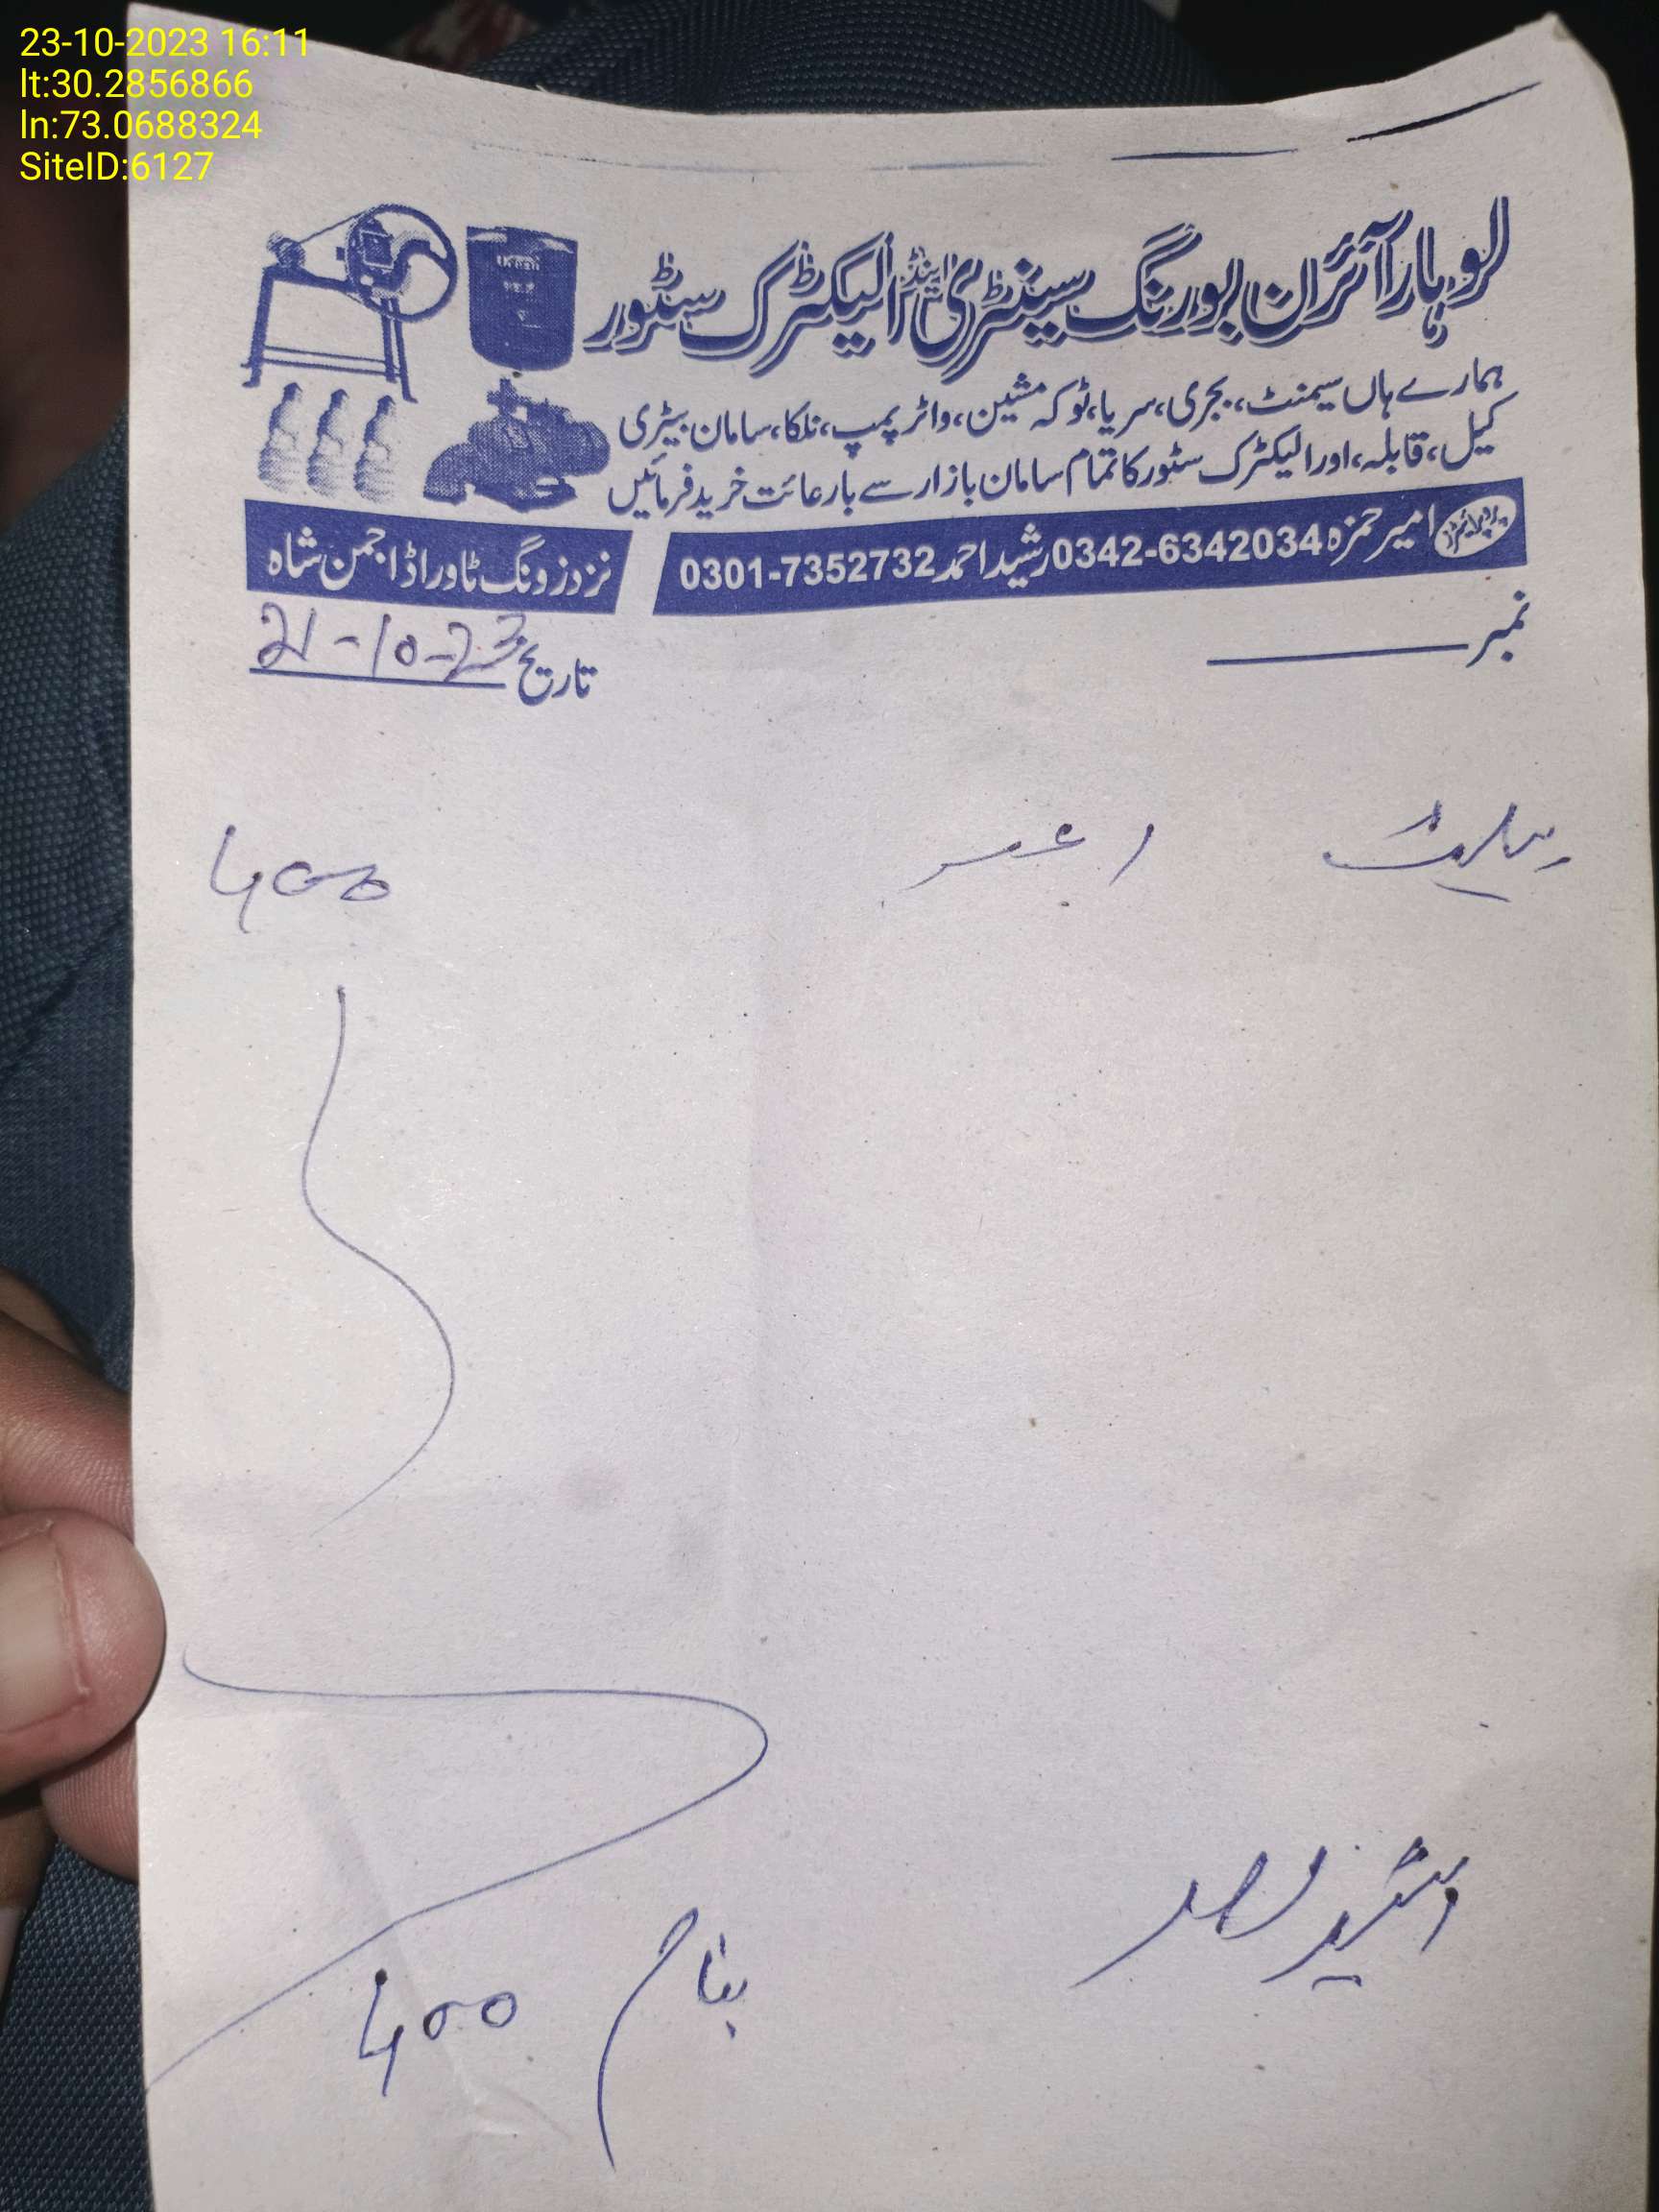 23-10-2023 16:11
lt:30.2856866
ln:73.0688324
SiteID:6127
لوہار آئرن بورنگ سینٹری اینڈ الیکٹرک سٹور
ہمارے ہاں سیمنٹ، بجری، سریا، ٹوکہ مشین، واٹر پمپ، نلکا، سامان بیٹری
کیل، قابلہ، اور الیکٹرک سٹور کا تمام سامان بازار سے بارعائت خرید فرمائیں
پروپرائیٹرز امیر حمزہ 0342-6342034 رشید احمد 0301-7352732
نزد زونگ ٹاور اڈا جمن شاہ
نمبر
تاریخ 21-10-23
400
رشید احمد
400